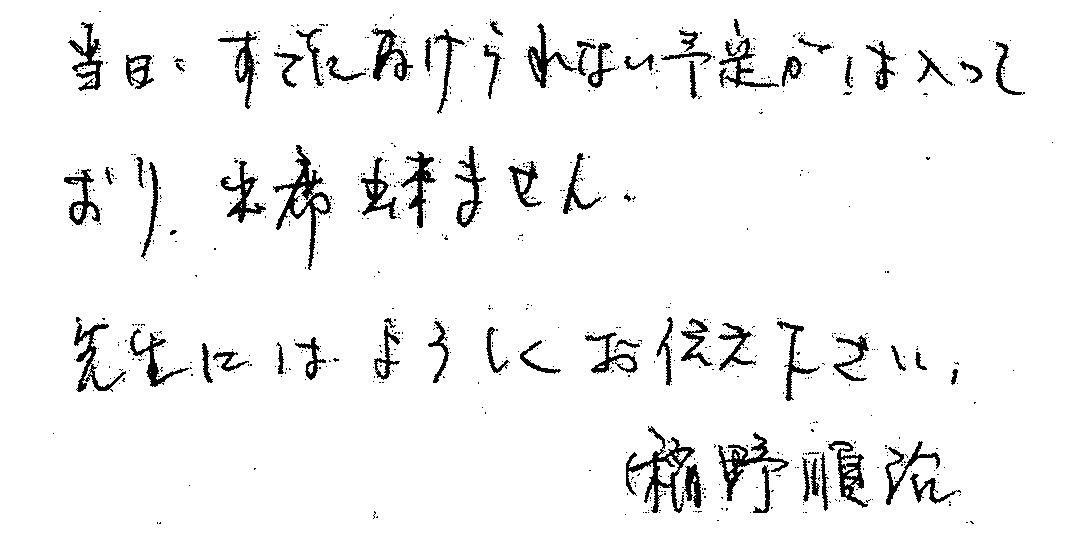 当日、すでにぬけられない予定がは入って
おり、出席出来ません。
先生にはようしくお伝え下さい。
稲野順治